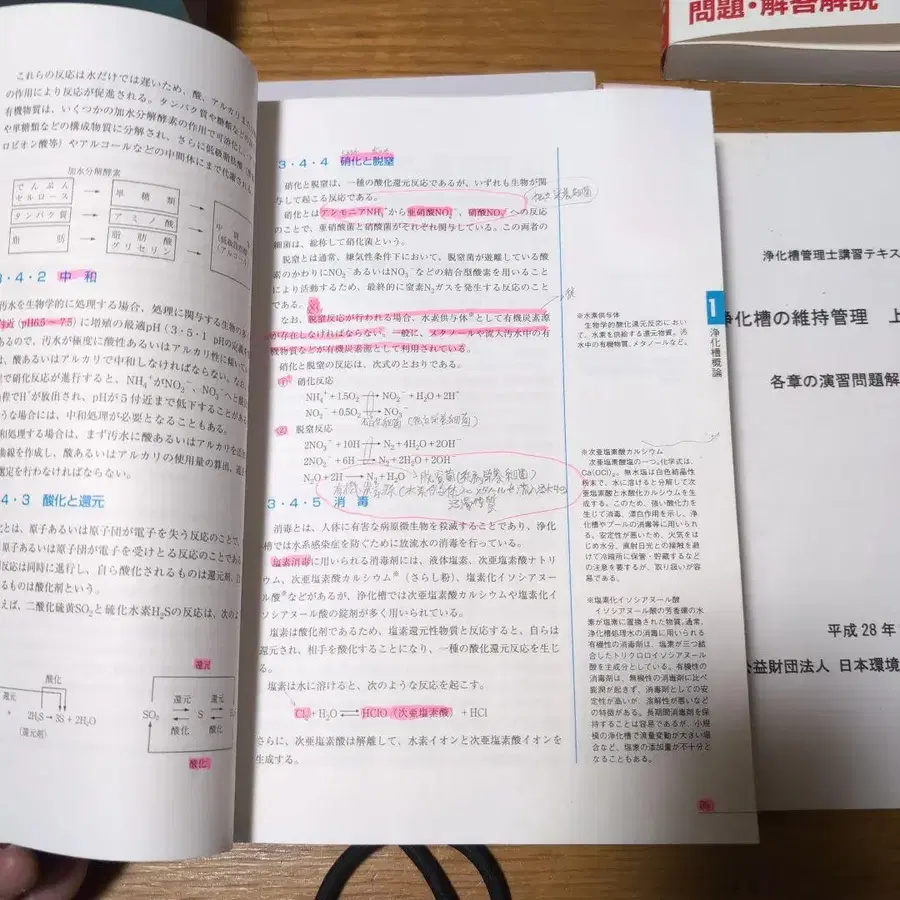 問題・解答解説
これらの反応は水だけでは遅いため、酸、アルカリ
の作用により反応が促進される。タンパク質や糖類など
有機物質は、いくつかの加水分解酵素の作用で可溶化し
や単糖類などの構成物質に分解され、さらに低級脂肪酸
ロピオン酸等）やアルコールなどの中間体にまで代謝され
加水分解酵素
でんぷん
セルロース
単糖類
タンパク質
アミノ酸
脂肪
脂肪酸
グリセリン
3・4・2 中和
汚水を生物学的に処理する場合、処理に関与する生物の
付近（pH6.5～7.5）に増殖の最適pH（3・5・1 pHの定義
あるので、汚水が極度に酸性あるいはアルカリ性に
は、酸あるいはアルカリで中和しなければならない。
で硝化反応が進行すると、NH₄⁺がNO₂⁻、NO₃⁻へと
程でH⁺が放出され、pHが5付近まで低下することがある
うな場合には、中和処理が必要となることもある。
和処理する場合は、まず汚水に酸あるいはアルカリを
曲線を作成し、酸あるいはアルカリの使用量の算出、
選定を行わなければならない。
4・3 酸化と還元
化とは、原子あるいは原子団が電子を失う反応のことで、
原子あるいは原子団が電子を受けとる反応のことである
反応は同時に進行し、自ら酸化されるものは還元剤、
るものは酸化剤という。
えば、二酸化硫黄SO₂と硫化水素H₂Sの反応は、次の
還元
酸化
還元
＋ 2H₂S→3S＋2H₂O
（還元剤）
SO₂ 還元 S 還元
酸化 酸化
酸化
3・4・4 硝化と脱窒
硝化と脱窒は、一種の酸化還元反応であるが、いずれも生物が関
与して起こる反応である。
独立栄養細菌
硝化とはアンモニアNH₄⁺から亜硝酸NO₂⁻、硝酸NO₃⁻への反応
のことで、亜硝酸菌と硝酸菌がそれぞれ関与している。この両者の
細菌は、総称して硝化菌という。
脱窒とは通常、嫌気性条件下において、脱窒菌が遊離している酸
素のかわりにNO₂⁻あるいはNO₃⁻などの結合型酸素を用いること
により活動するため、最終的に窒素N₂ガスを発生する反応のこと
である。
なお、脱窒反応が行われる場合、水素供与体※として有機炭素源
が存在しなければならない。一般に、メタノールや流入汚水中の有
機物質などが有機炭素源として利用されている。
硝化と脱窒の反応は、次式のとおりである。
① 硝化反応
NH₄⁺＋1.5O₂→NO₂⁻＋H₂O＋2H⁺
NO₂⁻＋0.5O₂→NO₃⁻
硝化細菌（独立栄養細菌）
② 脱窒反応
2NO₃⁻＋10H→N₂＋4H₂O＋2OH⁻
2NO₂⁻＋6H→N₂＋2H₂O＋2OH⁻
N₂O＋2H→N₂＋H₂O
3・4・5 消毒
消毒とは、人体に有害な病原微生物を殺滅することであり、浄化
槽では水系感染症を防ぐために放流水の消毒を行っている。
塩素消毒に用いられる消毒剤には、液体塩素、次亜塩素酸ナトリ
ウム、次亜塩素酸カルシウム※（さらし粉）、塩素化イソシアヌー
ル酸※などがあるが、浄化槽では次亜塩素酸カルシウムや塩素化イ
ソシアヌール酸の錠剤が多く用いられている。
塩素は酸化剤であるため、塩素還元性物質と反応すると、自らは
還元され、相手を酸化することになり、一種の酸化還元反応を生じ
る。
塩素は水に溶けると、次のような反応を起こす。
Cl₂＋H₂O⇄HClO（次亜塩素酸）＋HCl
さらに、次亜塩素酸は解離して、水素イオンと次亜塩素酸イオンを
生成する。
※水素供与体
生物学的酸化還元反応におい
て、水素を供給する還元物質。汚
水中の有機物質、メタノールなど。
※次亜塩素酸カルシウム
次亜塩素酸塩の一つ。化学式は、
Ca(OCl)₂。無水塩は白色結晶性
粉末で、水に溶けると分解して次
亜塩素酸と水酸化カルシウムを生
成する。このため、強い酸化力を
生じて消毒、漂白作用を示し、浄
化槽やプールの消毒等に用いられ
る。安定性が悪いため、火気をは
じめ水分、直射日光との接触を避
けて冷暗所に保管・貯蔵するなど
の注意を要するが、取り扱いが容
易である。
※塩素化イソシアヌール酸
イソシアヌール酸の芳香環の水
素が塩素に置換された物質。通常、
浄化槽処理水の消毒に用いられる
有機性の消毒剤は、塩素が三つ結
合したトリクロロイソシアヌール
酸を主成分としている。有機性の
消毒剤は、無機性の消毒剤に比べ
膨潤が起きず、消毒剤としての安
定性が高いが、溶解性が悪いなど
の特徴がある。長期間消毒剤を保
持することは容易であるが、小規
模の浄化槽で流量変動が大きい場
合など、塩素の添加量が不十分と
なることもある。
1
浄化槽概論
浄化槽管理士講習テキス
浄化槽の維持管理 上
各章の演習問題解
平成28年
公益財団法人 日本環境